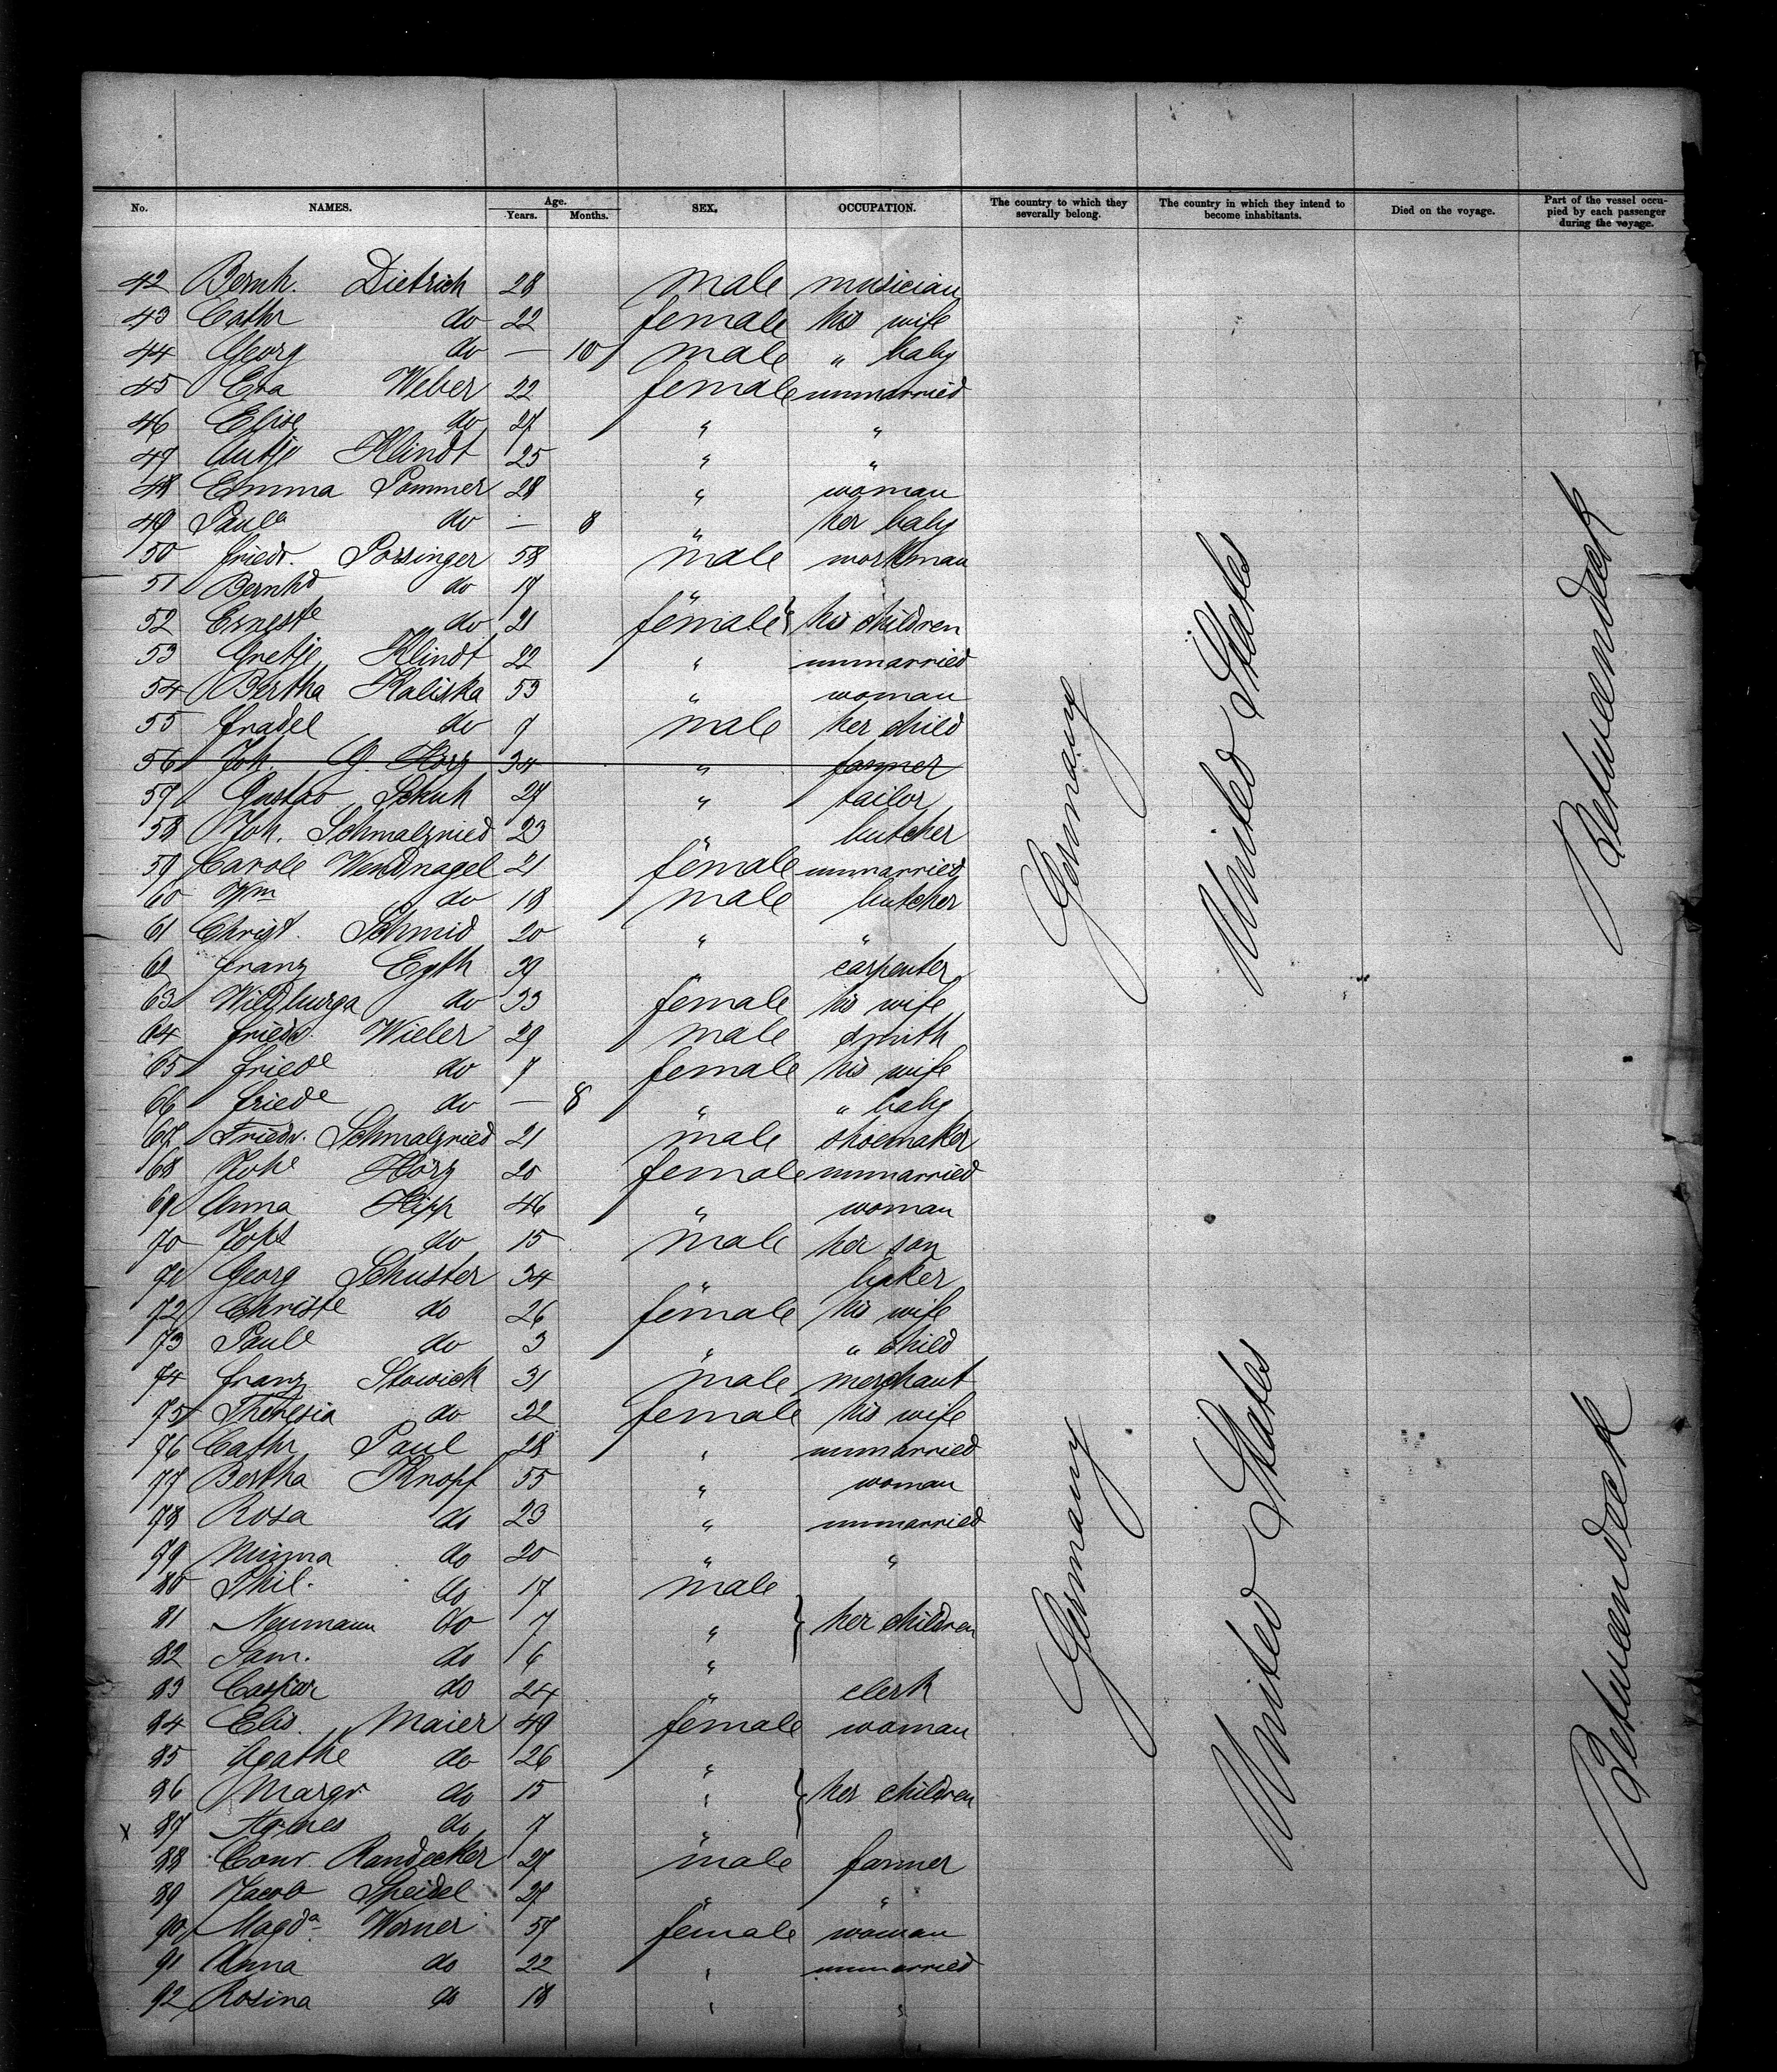 No. NAMES. Age. Years. Months. SEX. OCCUPATION. The country to which they severally belong. The country in which they intend to become inhabitants. Died on the voyage. Part of the vessel occupied by each passenger during the voyage.
42 Bernh. Dietrich 28 male musician
43 Cathr do 22 female his wife
44 Georg do — 10 male " baby
45 Eva Weber 22 female unmarried
46 Elise do 27 " "
47 Antje Klindt 25 " "
48 Emma Pommer 28 " woman
49 Paula do — 8 " her baby
50 Friedr. Possinger 58 male workman
51 Bernhd do 17 "
52 Erneste do 21 female } his children
53 Gretje Klindt 22 " unmarried
54 Bertha Kaliska 53 " woman
55 Fradel do 7 male her child
56 Joh. G. Hörz 34 " farmer
57 Gustav Schuh 27 " tailor
58 Joh. Schmalzried 23 " butcher
59 Carole Wendnagel 21 female unmarried
60 Wm do 18 male butcher
61 Christ. Schmid 20 " "
62 Franz Egth 39 " carpenter
63 Wildburga do 33 female his wife
64 Friedr. Wieler 29 male smith
65 Friede do 7 female his wife
66 Friede do — 8 " " baby
67 Friedr. Schmalzried 21 male shoemaker
68 Johe Hörz 20 female unmarried
69 Anna Hipp 46 " woman
70 Johs do 15 male her son
71 Georg Schuster 34 " baker
72 Christe do 26 female his wife
73 Paule do 3 " " child
74 Franz Stowick 31 male merchant
75 Theresia do 32 female his wife
76 Cathr Paul 28 " unmarried
77 Bertha Knopf 55 " woman
78 Rosa do 23 " unmarried
79 Minna do 20 " "
80 Phil. do 17 male
81 Neumann do 7 " } her children
82 Sam. do 6 "
83 Caspar do 24 " clerk
84 Elis. Maier 49 female woman
85 Agathe do 26 "
86 Margr do 15 " } her children
x 87 Agnes do 7 "
88 Conr. Randecker 27 male farmer
89 Jacob Speidel 27 " "
90 Magda Werner 57 female woman
91 Anna do 22 " unmarried
92 Rosina do 18 " "
Germany
United States
Betweendeck
Germany
United States
Betweendeck